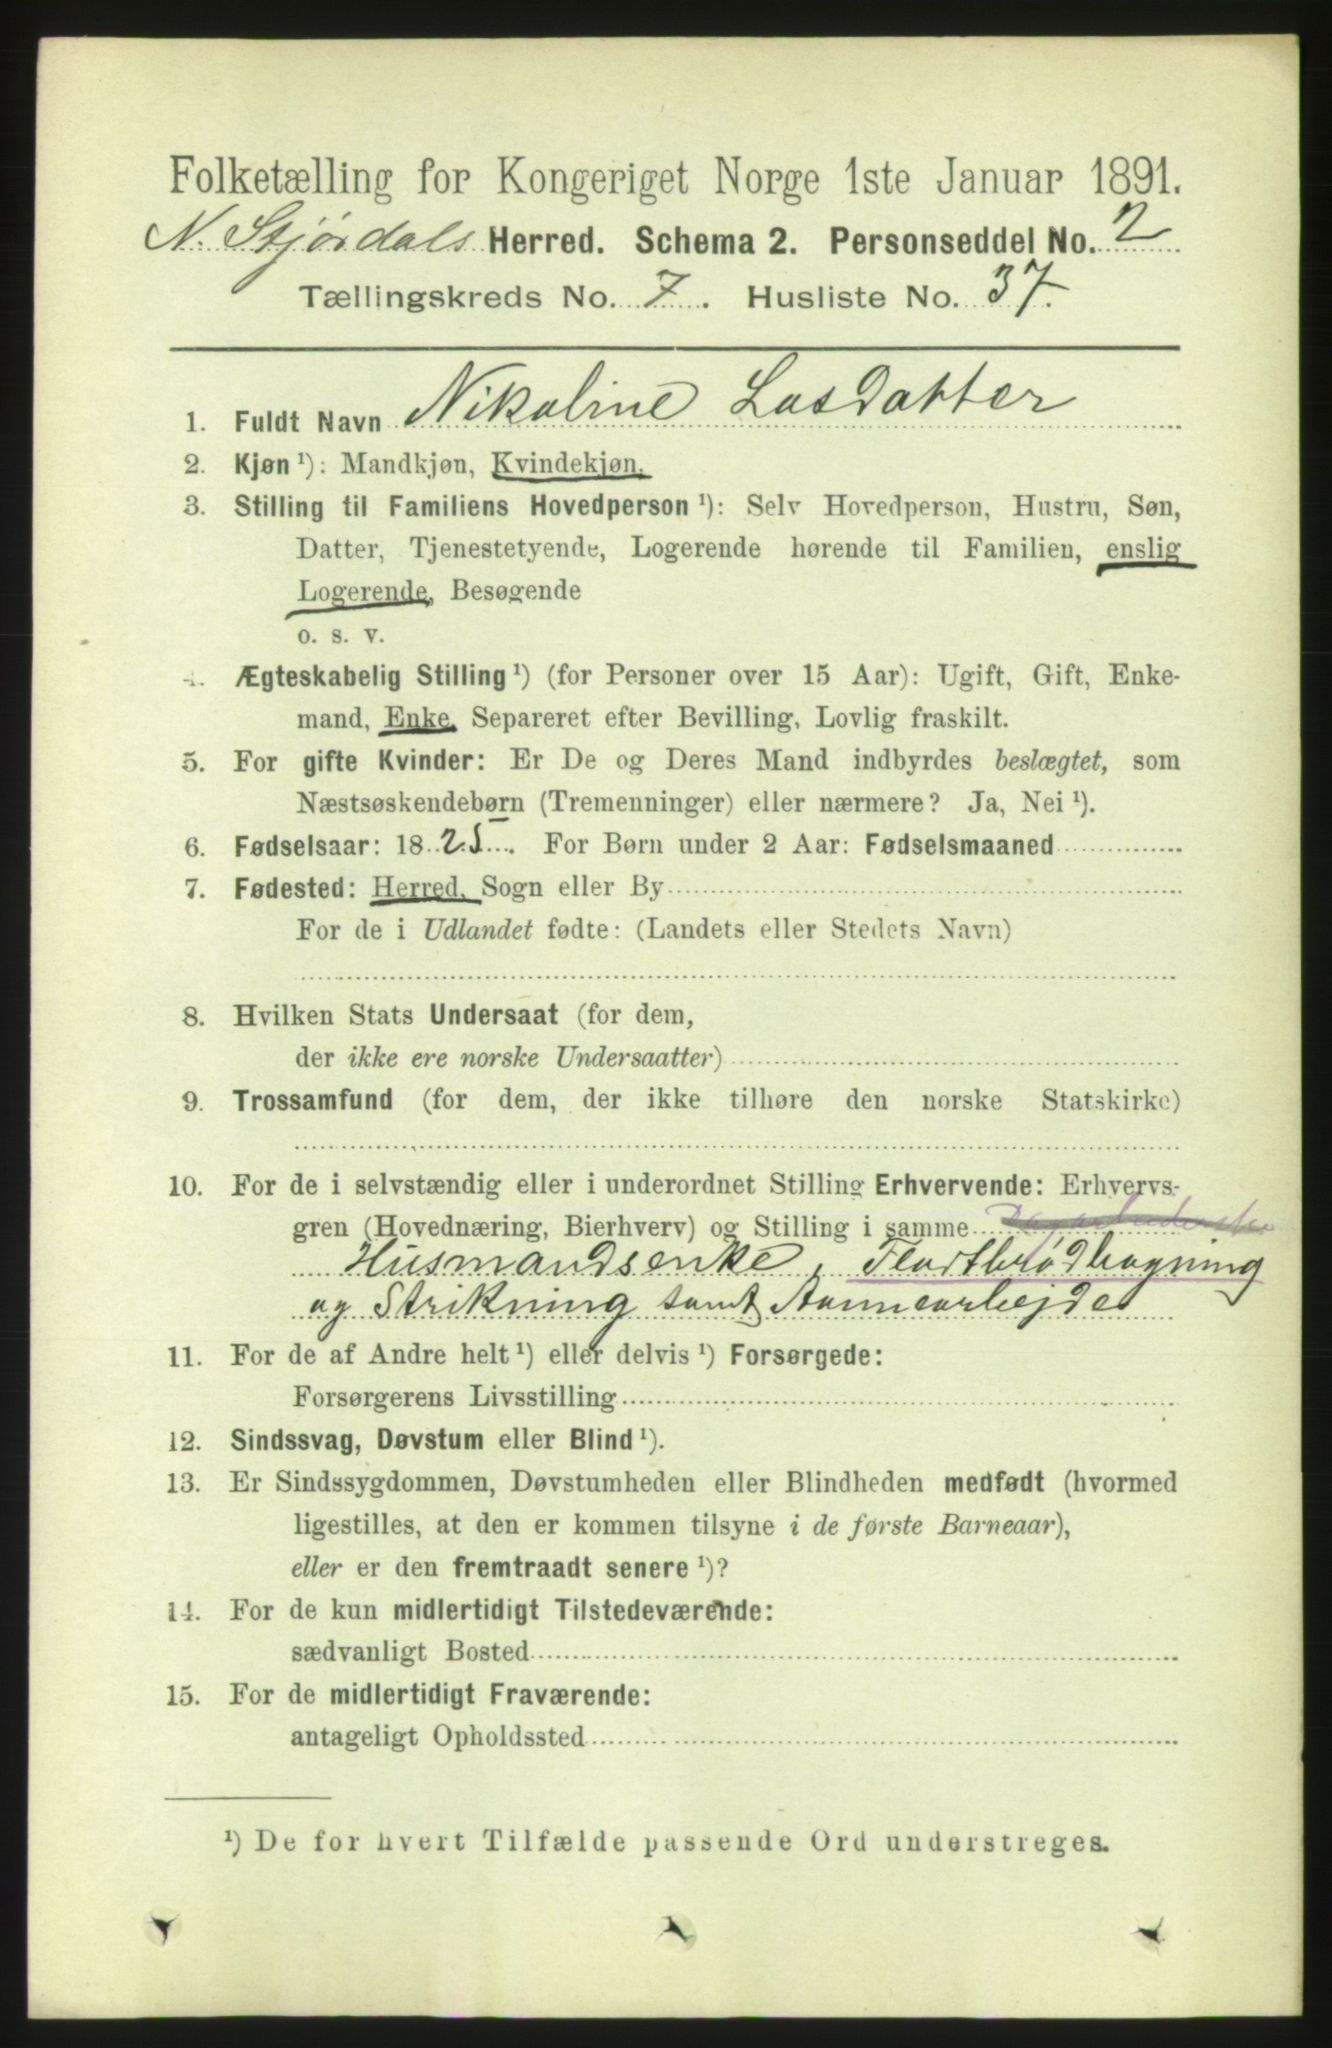 Folketælling for Kongeriget Norge 1ste Januar 1891.
N. Stjørdals Herred. Schema 2. Personseddel No. 2
Tællingskreds No. 7. Husliste No. 37.
1. Fuldt Navn Nikoline Lasdatter
2. Kjøn ¹): Mandkjøn, Kvindekjøn.
3. Stilling til Familiens Hovedperson ¹): Selv Hovedperson, Hustru, Søn,
Datter, Tjenestetyende, Logerende hørende til Familien, enslig
Logerende, Besøgende
o. s. v.
4. Ægteskabelig Stilling ¹) (for Personer over 15 Aar): Ugift, Gift, Enke-
mand, Enke, Separeret efter Bevilling, Lovlig fraskilt.
5. For gifte Kvinder: Er De og Deres Mand indbyrdes beslægtet, som
Næstsøskendebørn (Tremenninger) eller nærmere? Ja, Nei ¹).
6. Fødselsaar: 1825. For Børn under 2 Aar: Fødselsmaaned
7. Fødested: Herred, Sogn eller By
For de i Udlandet fødte: (Landets eller Stedets Navn)
8. Hvilken Stats Undersaat (for dem,
der ikke ere norske Undersaatter)
9. Trossamfund (for dem, der ikke tilhøre den norske Statskirke)
10. For de i selvstændig eller i underordnet Stilling Erhvervende: Erhvervs-
gren (Hovednæring, Bierhverv) og Stilling i samme
Husmandsenke, Fladtbrødbagning
og Strikning samt Aannearbejde
11. For de af Andre helt ¹) eller delvis ¹) Forsørgede:
Forsørgerens Livsstilling
12. Sindssvag, Døvstum eller Blind ¹).
13. Er Sindssygdommen, Døvstumheden eller Blindheden medfødt (hvormed
ligestilles, at den er kommen tilsyne i de første Barneaar),
eller er den fremtraadt senere ¹)?
14. For de kun midlertidigt Tilstedeværende:
sædvanligt Bosted
15. For de midlertidigt Fraværende:
antageligt Opholdssted
¹) De for hvert Tilfælde passende Ord understreges.